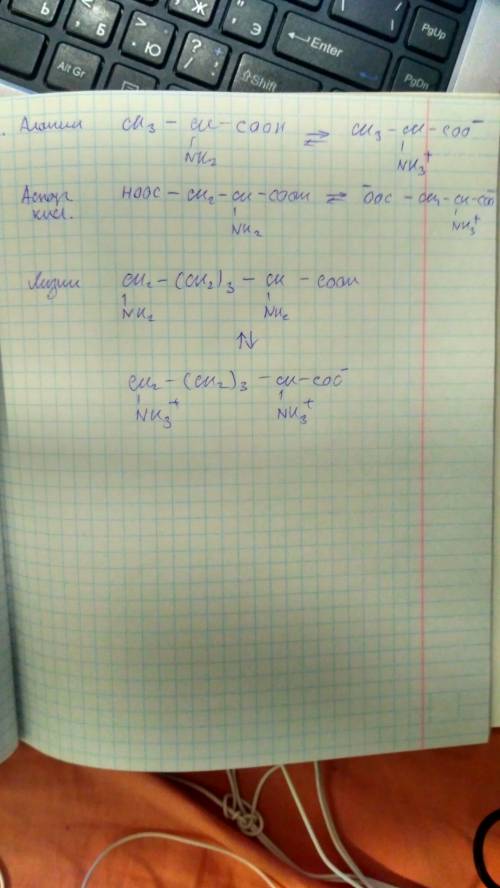 Ь
Б
Ю
Ж
Э
Enter
PgUp
PgDn
Alt Gr
Shift
Аланин CH3 – CH – COOH ⇌ CH3 – CH – COO⁻
NH2 NH3⁺
Аспар кисл. HOOC – CH2 – CH – COOH ⇌ ⁻OOC – CH2 – CH – COO⁻
NH2 NH3⁺
Лизин CH2 – (CH2)3 – CH – COOH
NH2 NH2
⇅
CH2 – (CH2)3 – CH – COO⁻
NH3⁺ NH3⁺